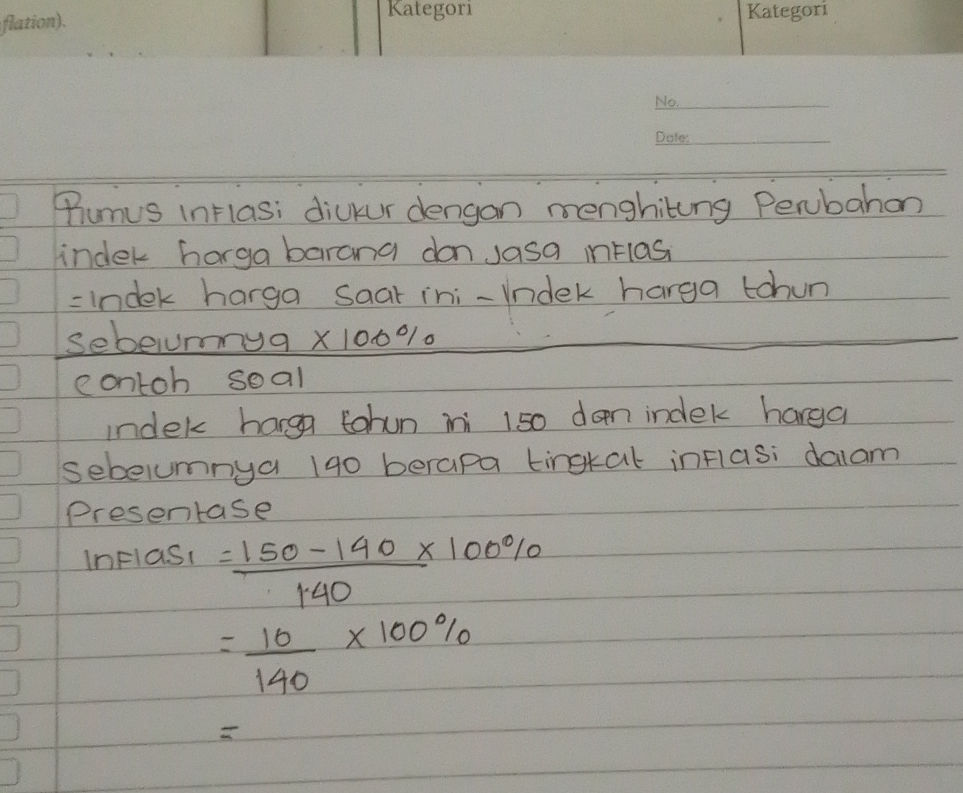 flation).
Kategori
Kategori
No.
Date:
Rumus inflasi diukur dengan menghitung Perubahan
indek harga barang dan Jasa inflasi
= indek harga saat ini - Indek harga tahun
sebelumnya x 100%
contoh soal
indek harga tahun ini 150 dan indek harga
sebelumnya 140 berapa tingkat inflasi dalam
Presentase
Inflasi = 150 - 140 x 100%
140
= 10 x 100%
140
=